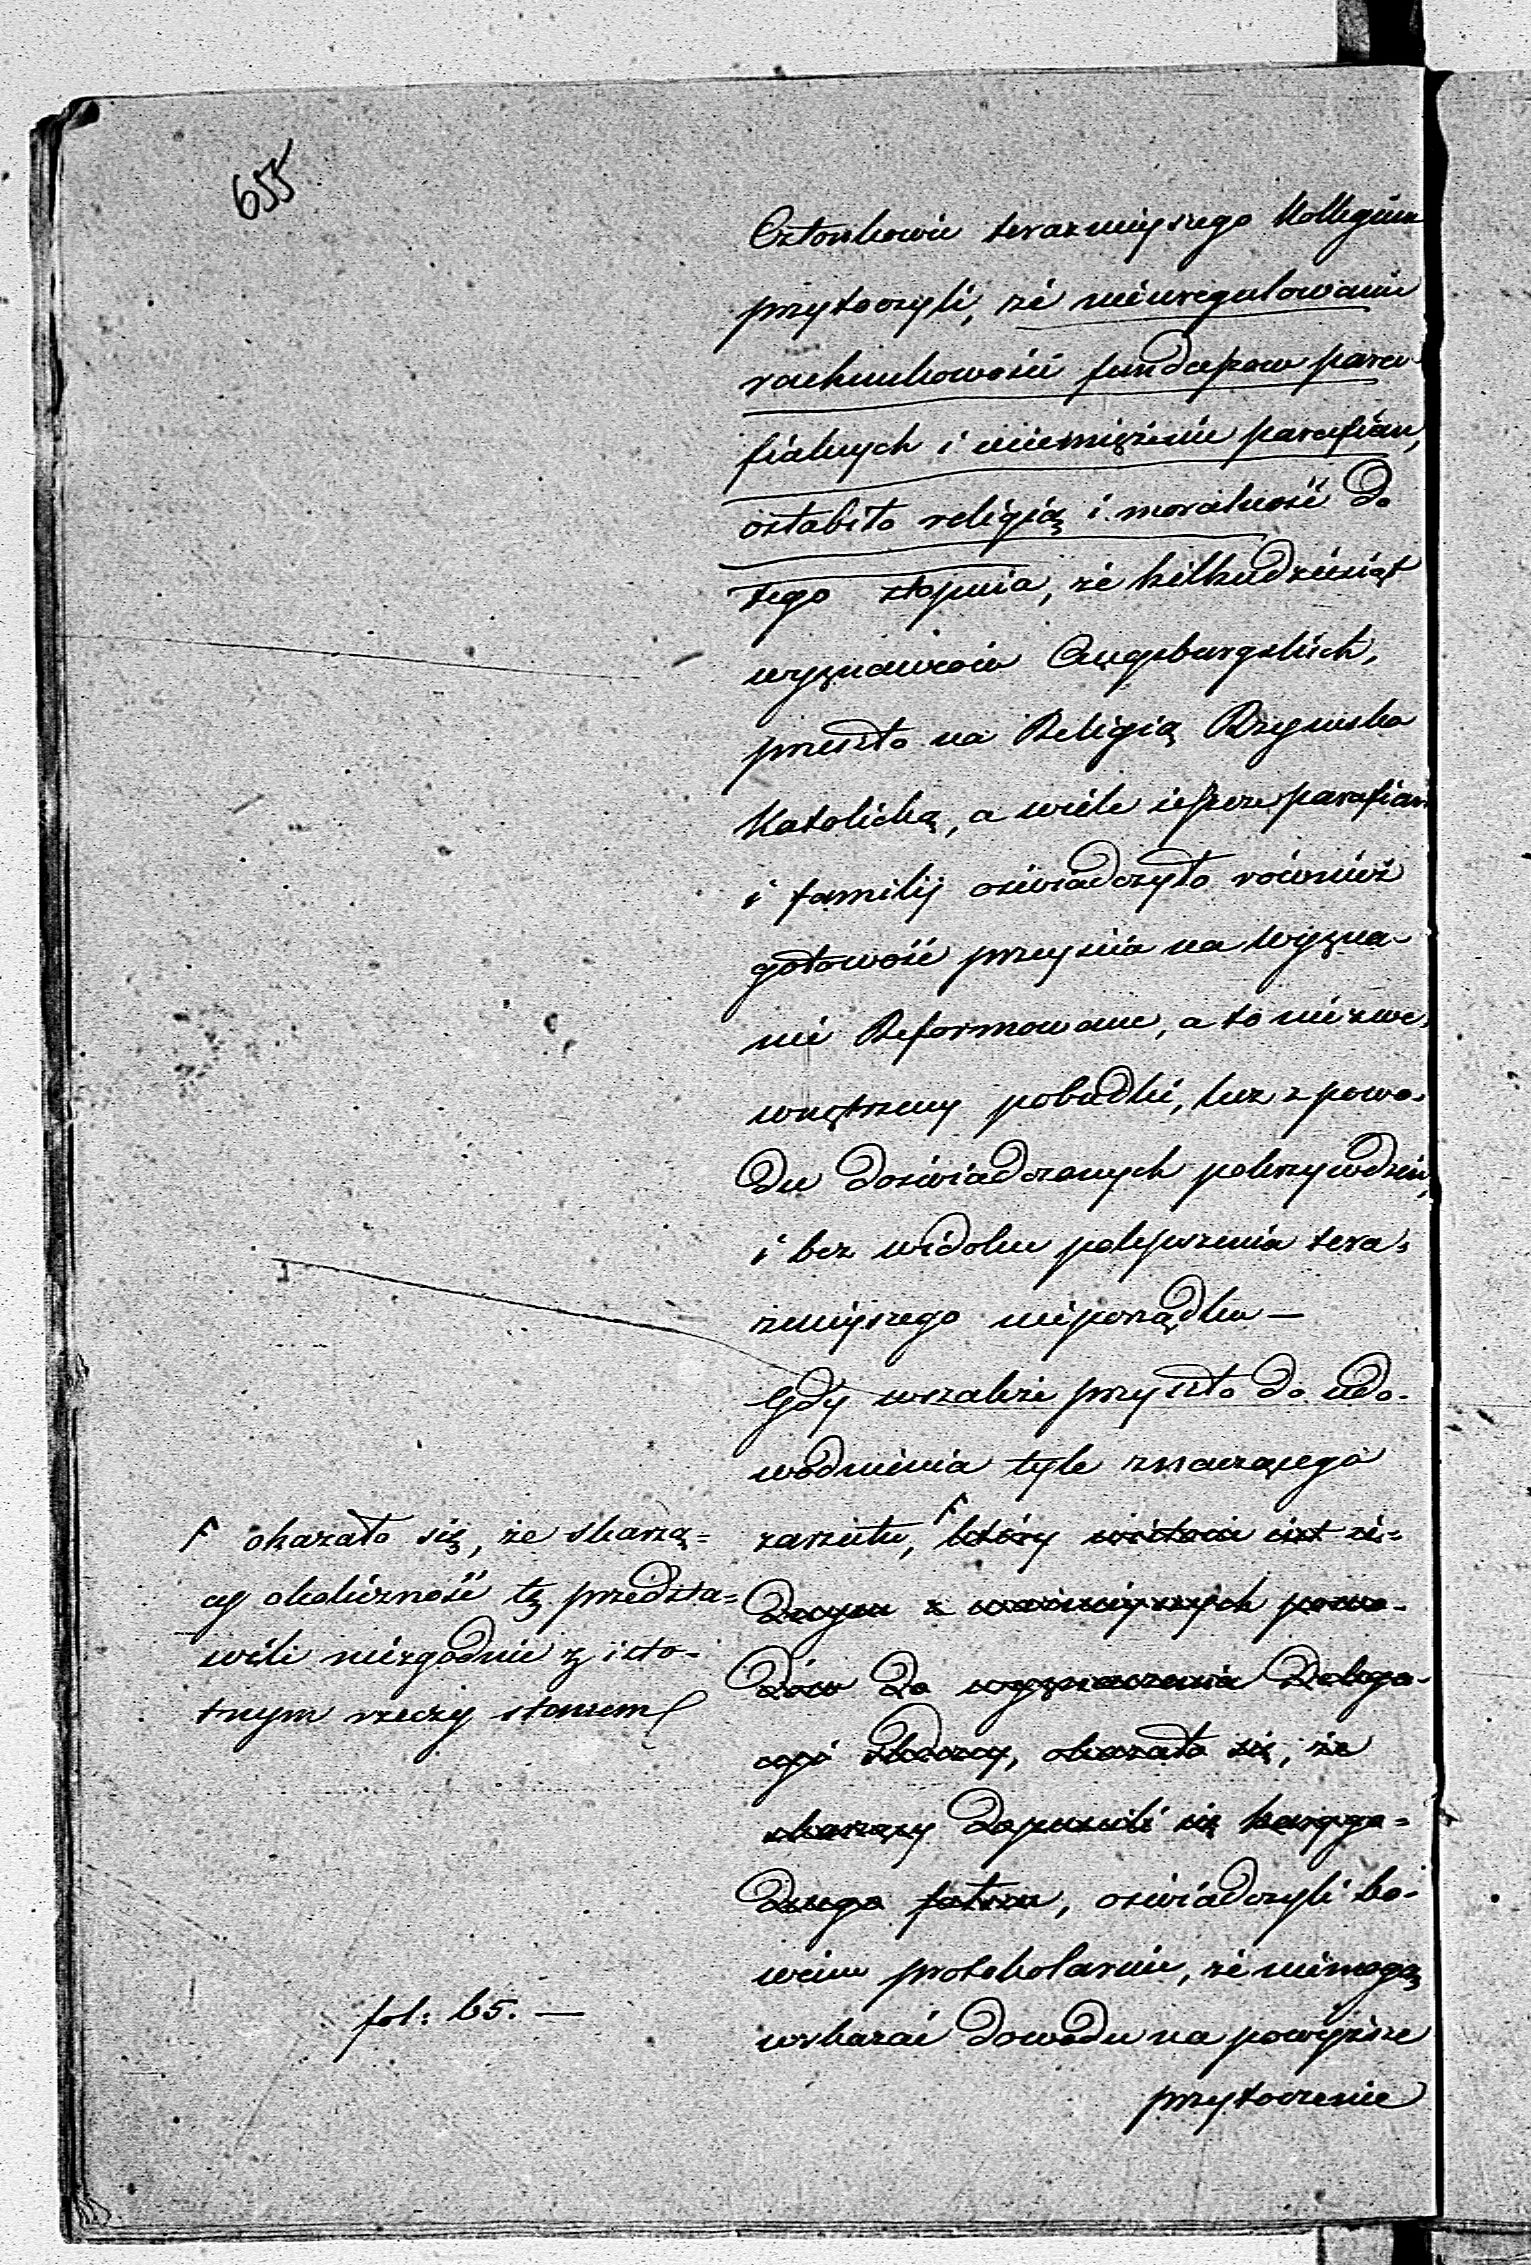 655
Członkowie teraznieyszego Kollegium
przytoczyli, że nieuregulowanie
rachunkowości funduszow para-
fialnych i uciemiężenie parafian,
osłabiło religią i moralność do
tego stopnia, że kilkudziesiąt
wyznawców Augsburgskich,
przeszło na Religią Rzymsko
Katolicką, a wiele jeszcze parafian
i familij oświadczyło również
gotowość przeyścia na wyzna-
nie Reformowane, a to nie z we-
wnętrzney pobudki, lecz z powo-
du doświadczonych pokrzywdzeń,
i bez widoku polepszenia tera-
znieyszego nieporządku —
Gdy wszakże przyszło do udo-
wodnienia tyle znaczącego
zarzutu, który iest ie-
dnym z ważnieyszych powo-
dów do wyznaczenia Delega-
cyi , okazało się, że
skarżący dopuścili się
fałszu, oświadczyli bo-
wiem protokolarnie, że niemogą
wskazać dowodu na powyższe
przytoczenie
F okazało się, że skarżą=
cy okoliczność tę przedsta=
wili niezgodnie z isto-
tnym rzeczy stanem
fol: 65. —